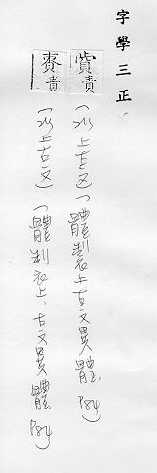 字學三正
責（以上古文）（體製表上古文異體. P84）
責（以上古文）（體製表上、古文異體. P84）